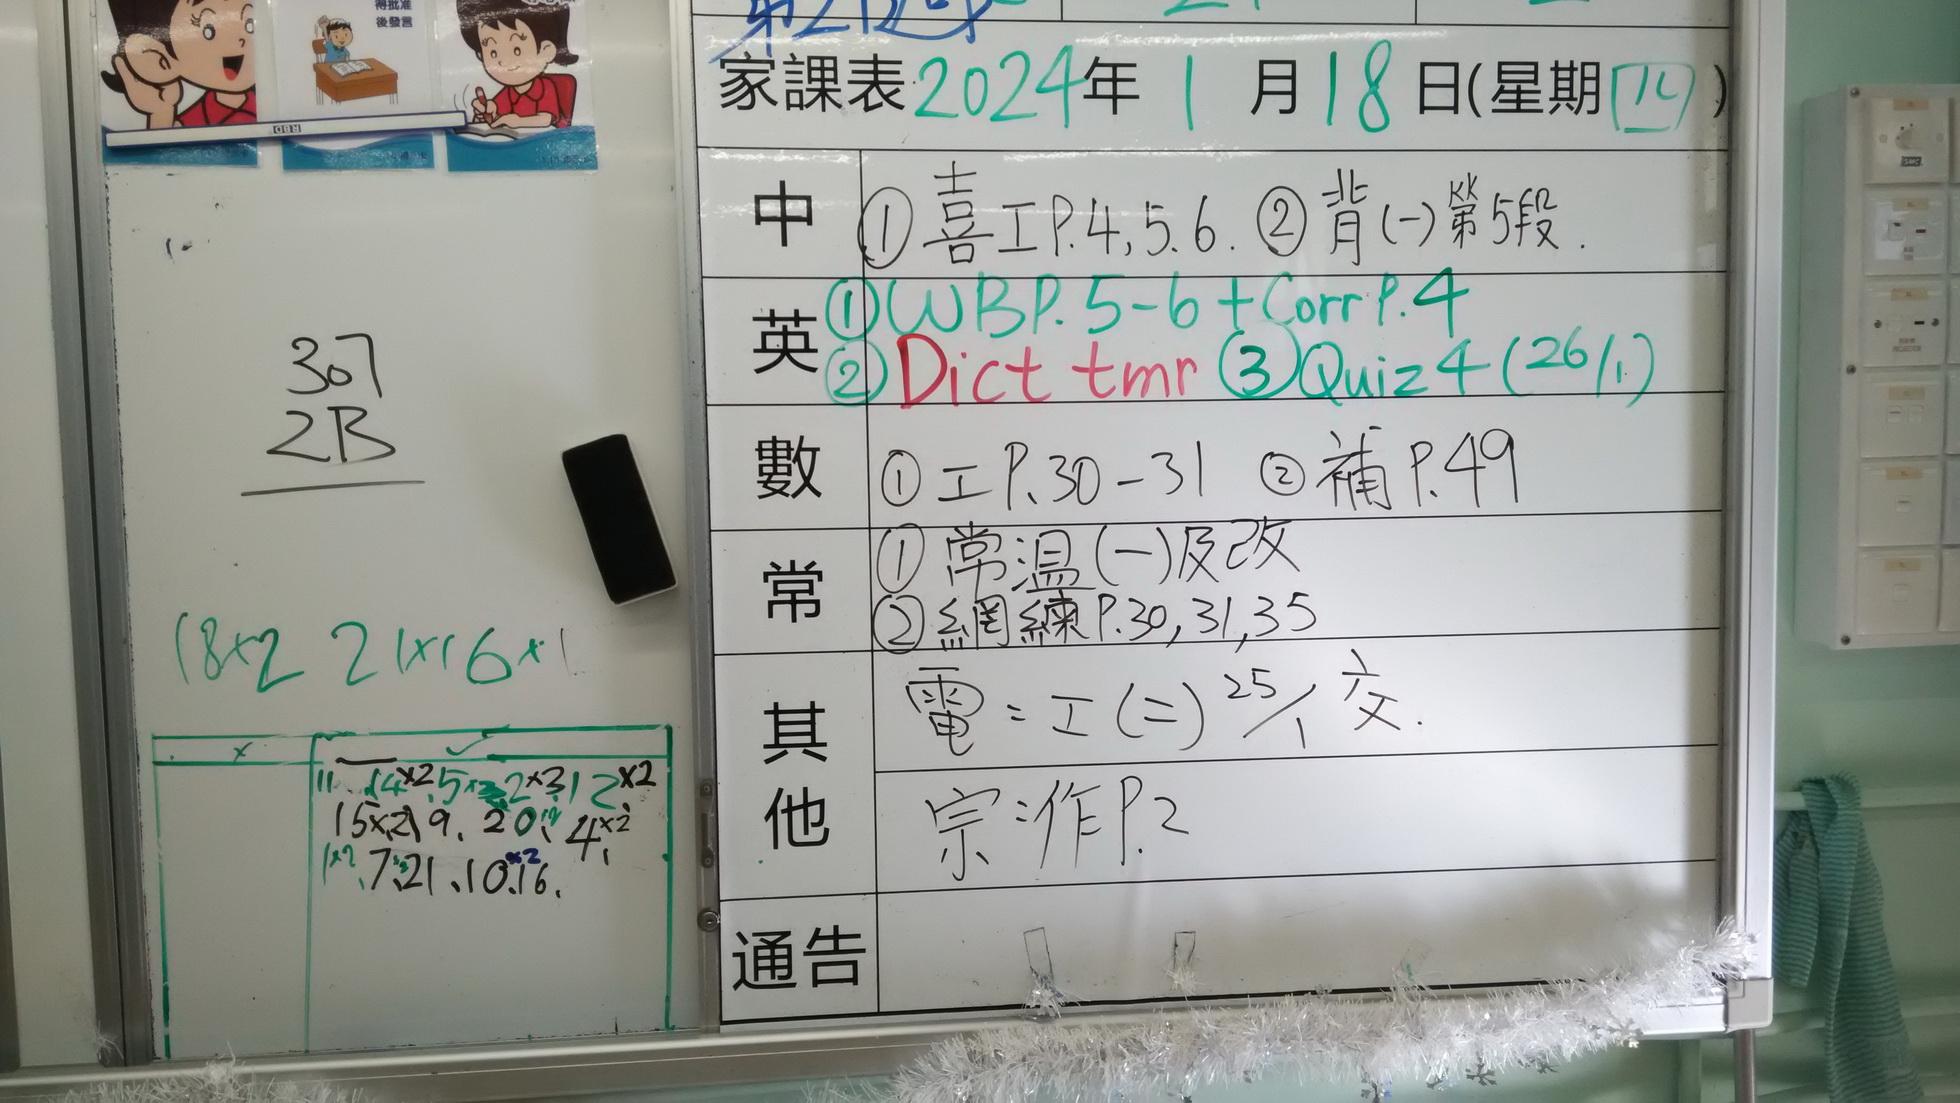 得批准
後發言
家課表2024年1月18日(星期四)
中
①喜工P.4,5.6.②背(一)第5段.
英
①WBP.5-6+Corr P.4
②Dict tmr ③Quiz4(26/1)
數
①工P.30-31 ②補P.49
常
①常溫(一)及改
②網練P.30,31,35
其他
電:工(二)25/1交.
宗:作P.2
通告
307
2B
18×2 21×1 6×1
× ✓
11 14×2 5 2×3 12×2
15×2 19. 20 4×2
1×2 7 21、10×2 16.